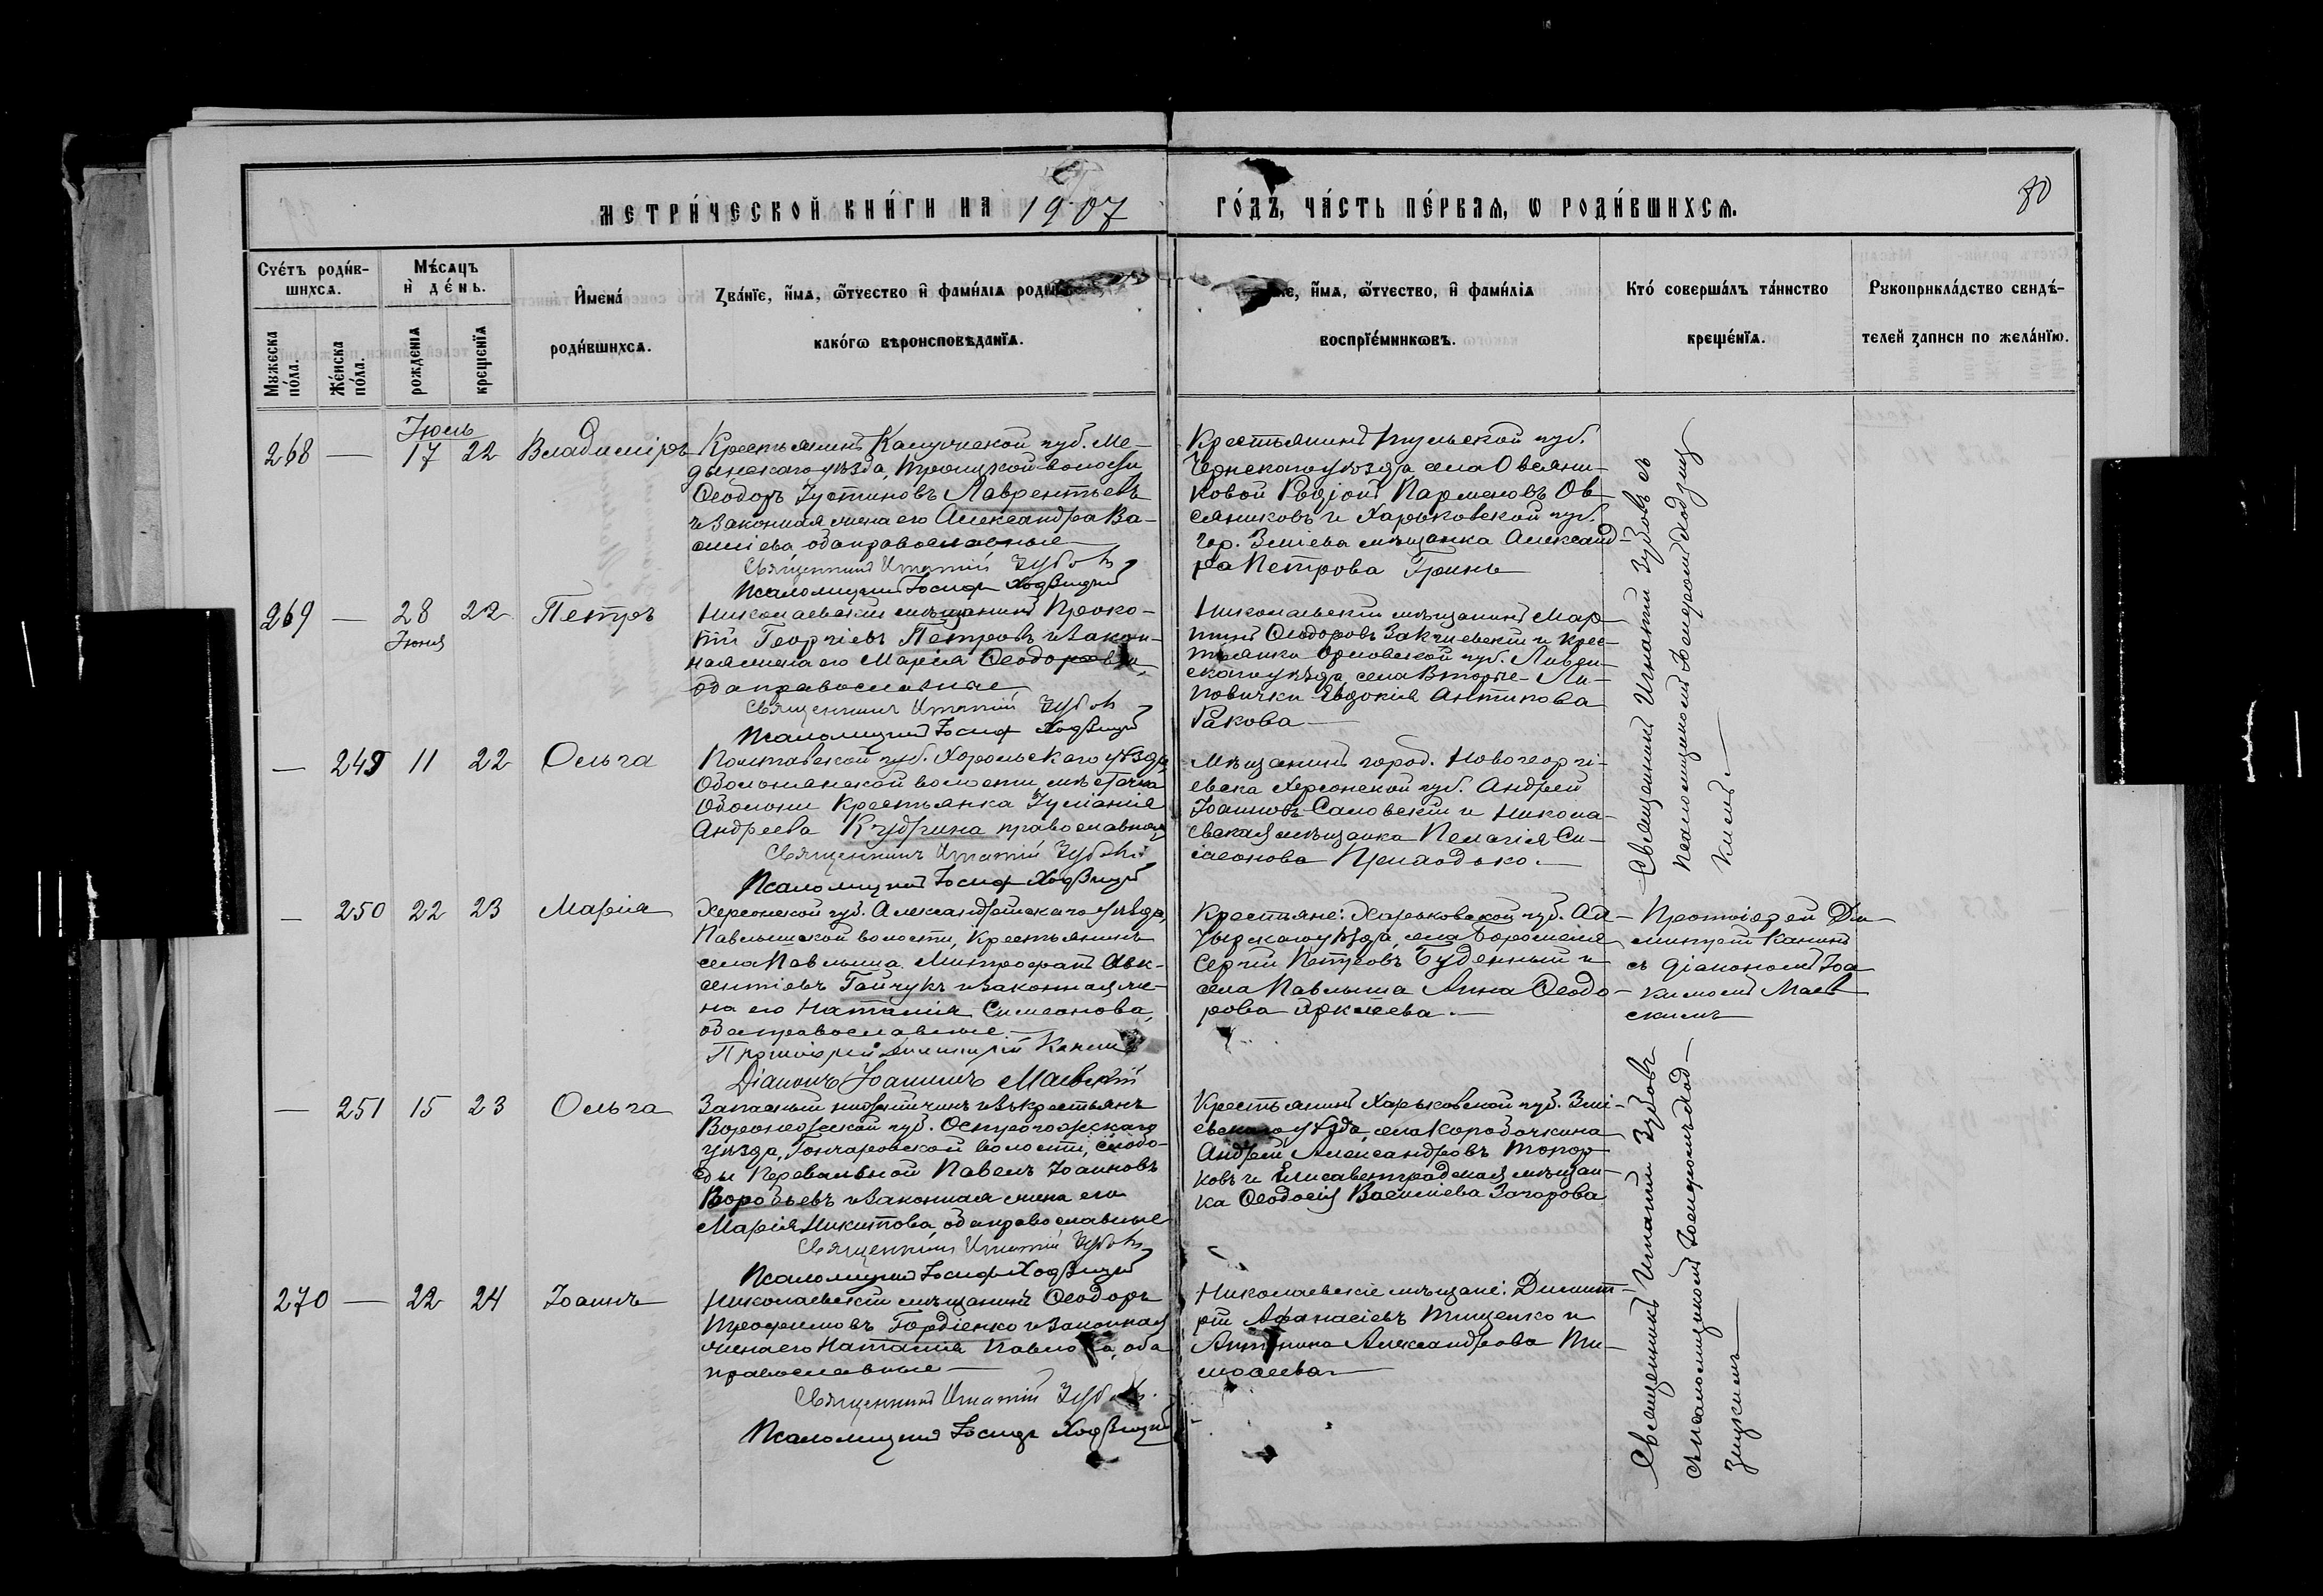 МЕТРИ́ЧЕСКОЙ КНИ́ГИ НА 1907 ГО́ДЪ, ЧА́СТЬ ПЕ́РВАЯ, Ѡ РОДИ́ВШИХСѦ.
80
Счéтъ роди́в-
шихсѧ.
Мужеска по́ла.
Же́нска по́ла.
Мѣ́сѧцъ
и҆ де́нь.
рожденїѧ
крещенїѧ
И҆мена́
роди́вшихсѧ.
Зва́нїе, и҆́мѧ, ѻ҆́тчество и҆ фами́лїѧ
како́гѡ вѣроисповѣданїѧ.
и҆́мѧ, ѻ҆́тчество, и҆ фами́лїѧ
воспрїе́мниковъ.
Кто́ соверша́лъ та́инство
креще́нїѧ.
Рукоприкла́дство свидѣ́-
телей записи по жела́нїю.
268 — Іюль 17 22 Владиміръ
Крестьянинъ Калужской губ. Ме-
дынскаго уѣзда, Троицкой волости
Ѳеодоръ Іустиновъ Лаврентьевъ
и законная жена его Александра Ва-
силіева, оба православные
Священникъ Игнатій Зубовъ
Псаломщикъ Іосифъ Ходзицкій
Крестьянинъ Тульской губ.
Чернскаго уѣзда села Овсяни-
ковой Родіонъ Парменовъ Ов-
сянниковъ и Харьковской губ.
гор. Зміева мѣщанка Александ-
ра Петрова Гринь
Священникъ Игнатій Зубовъ съ
псаломщикомъ Іосифомъ Ходзиц-
кимъ
269 — 28 Іюня 22 Петръ
Николаевскій мѣщанинъ Проко-
пій Георгіевъ Петровъ и закон-
ная жена его Марія Ѳеодорова,
оба православные
Священникъ Игнатій Зубовъ
Псаломщикъ Іосифъ Ходзицкій
Николаевскій мѣщанинъ Мар-
тинъ Ѳеодоровъ Закчиевскій и крес-
тьянка Орловской губ. Ливен-
скаго уѣзда, села Вторые-Ли-
повички Евдокія Антипова
Ракова
— 249 11 22 Ольга
Полтавской губ. Хорольскаго уѣзда,
Оболонянской волости, мѣстечка
Оболони крестьянка Іуліанія
Андреева Кудрина православная
Священникъ Игнатій Зубовъ
Псаломщикъ Іосифъ Ходзицкій
Мѣщанинъ город. Новогеоргі-
евска Херсонской губ. Андрей
Іоанновъ Саловскій и Никола-
евская мѣщанка Пелагія Си-
меонова Приходько.
— 250 22 23 Марія
Херсонской губ. Александрійскаго уѣзда,
Павлышской волости, крестьянинъ
села Павлыша Митрофанъ Авк-
сентіевъ Гайчукъ и законная же-
на его Наталія Симеонова,
оба православные
Протоіерей Димитрій Канинъ
Діаконъ Іоакимъ Маевскій
Крестьяне: Харьковской губ. Ах-
тырскаго уѣзда, села Боромля
Сергій Петровъ Буденный и
села Павлыша Анна Ѳеодо-
рова
Протоіерей Ди-
митрій Канинъ
съ діакономъ Іоа-
кимомъ Маев-
скимъ
— 251 15 23 Ольга
Запасный изъ крестьянъ
Воронежской губ. Острогожскаго
уѣзда, Гончаровской волости, слобо-
ды Перевальной Павелъ Іоанновъ
Воробьевъ и законная жена его
Марія Никитова, оба православные
Священникъ Игнатій Зубовъ
Псаломщикъ Іосифъ Ходзицкій
Крестьянинъ Харьковской губ. Змі-
евскаго уѣзда, села Коробочкина
Андрей Александровъ Топор-
ковъ и Елисаветградская мѣщан-
ка Ѳеодосія Василіева Захарова
Священникъ Игнатій Зубовъ
съ псаломщикомъ Іосифомъ Ход-
зицкимъ
270 — 22 24 Іоаннъ
Николаевскій мѣщанинъ Ѳеодоръ
Трофимовъ Гордіенко и законная
жена его Наталія Павлова, оба
православные
Священникъ Игнатій Зубовъ.
Псаломщикъ Іосифъ Ходзицкій
Николаевскіе мѣщане: Димит-
рій Аѳанасіевъ Тищенко и
Антонина Александрова Ти-
моѳеева